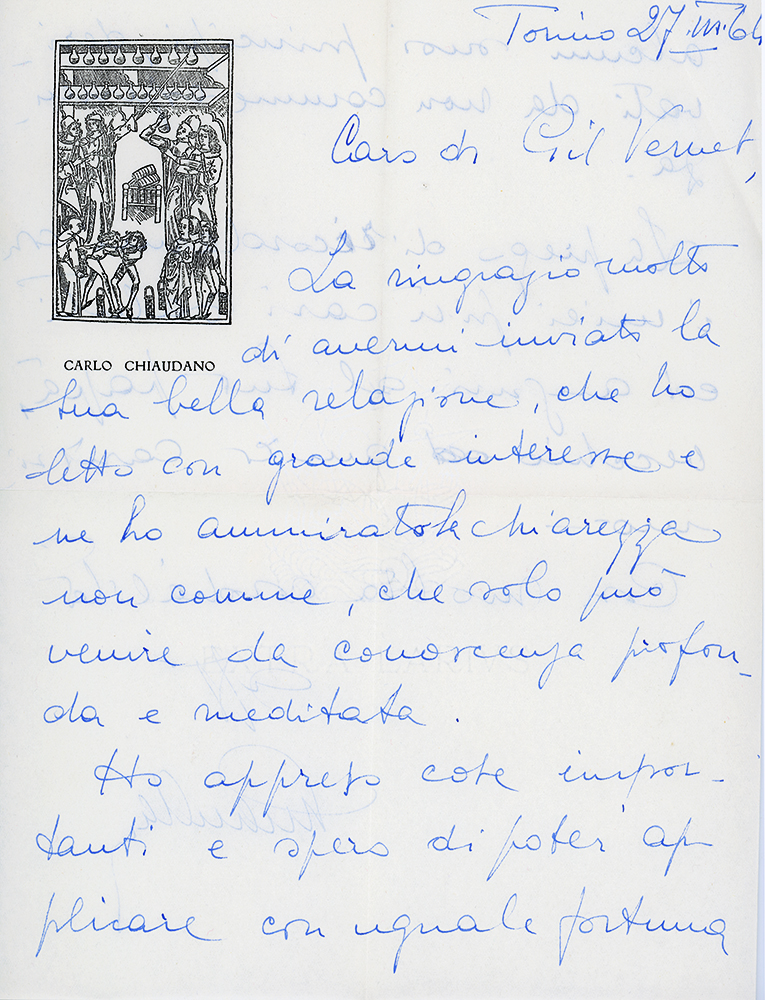 Torino 27.III.64
Caro di Gil Vernet,
La ringrazio molto
di avermi inviato la
CARLO CHIAUDANO
sua bella relazione, che ho
letto con grande interesse e
ne ho ammirato la chiarezza
non comune, che solo può
venire da conoscenza profon-
da e meditata.
Ho appreso cose impor-
tanti e spero di poter ap-
plicare con uguale fortuna